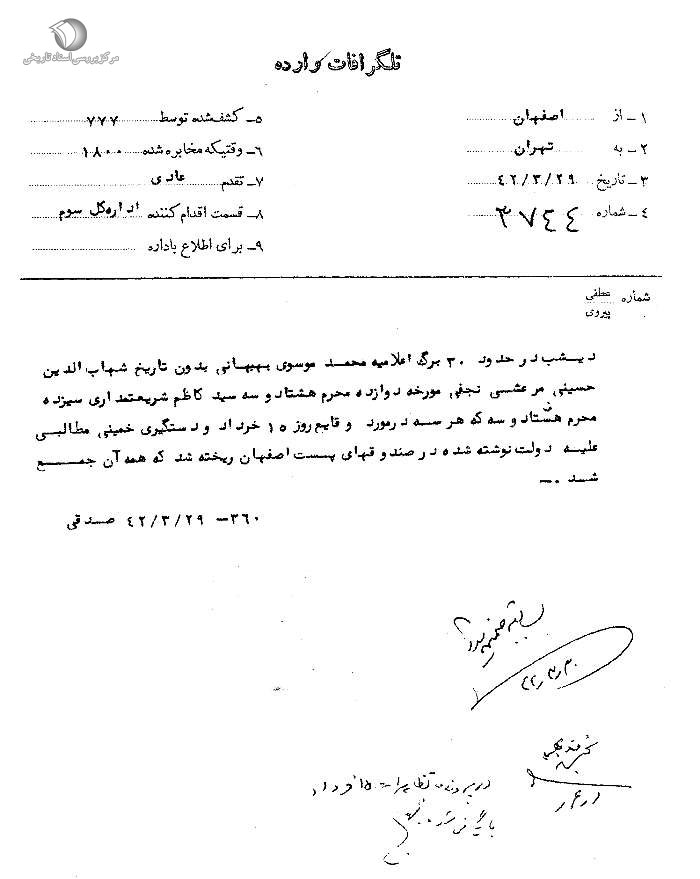 مرکز بررسی اسناد تاریخی
تلگرافات وارده
۱ـ از اصفهان
۲ـ به تهران
۳ـ تاریخ ۴۲/۳/۲۹
۴ـ شماره ۳۷۴۴
۵ـ کشف‌شده توسط ۷۷۷
۶ـ وقتیکه مخابره شده ۱۸۰۰
۷ـ تقدم عادی
۸ـ قسمت اقدام کننده اداره‌کل سوم
۹ـ برای اطلاع باداره
شماره عطفی
پیروی
دیشب در حدود ۳۰ برگ اعلامیه محمد موسوی بهبهانی بدون تاریخ شهاب الدین
حسینی مرعشی نجفی مورخه دوازده محرم هشتاد و سه سید کاظم شریعتمداری سیزده
محرم هشتاد و سه که هر سه در مورد وقایع روز ۱۵ خرداد و دستگیری خمینی مطالبی
علیه دولت نوشته شده در صندوقهای پست اصفهان ریخته شد که همه آن جمع
شد .ـ
۳۶۰ـ ۴۲/۳/۲۹ صدقی
بسابقه ضمیمه شود
۴۲/۳/۳۰
در پرونده تظاهرات ۱۵ خرداد
بایگانی شود